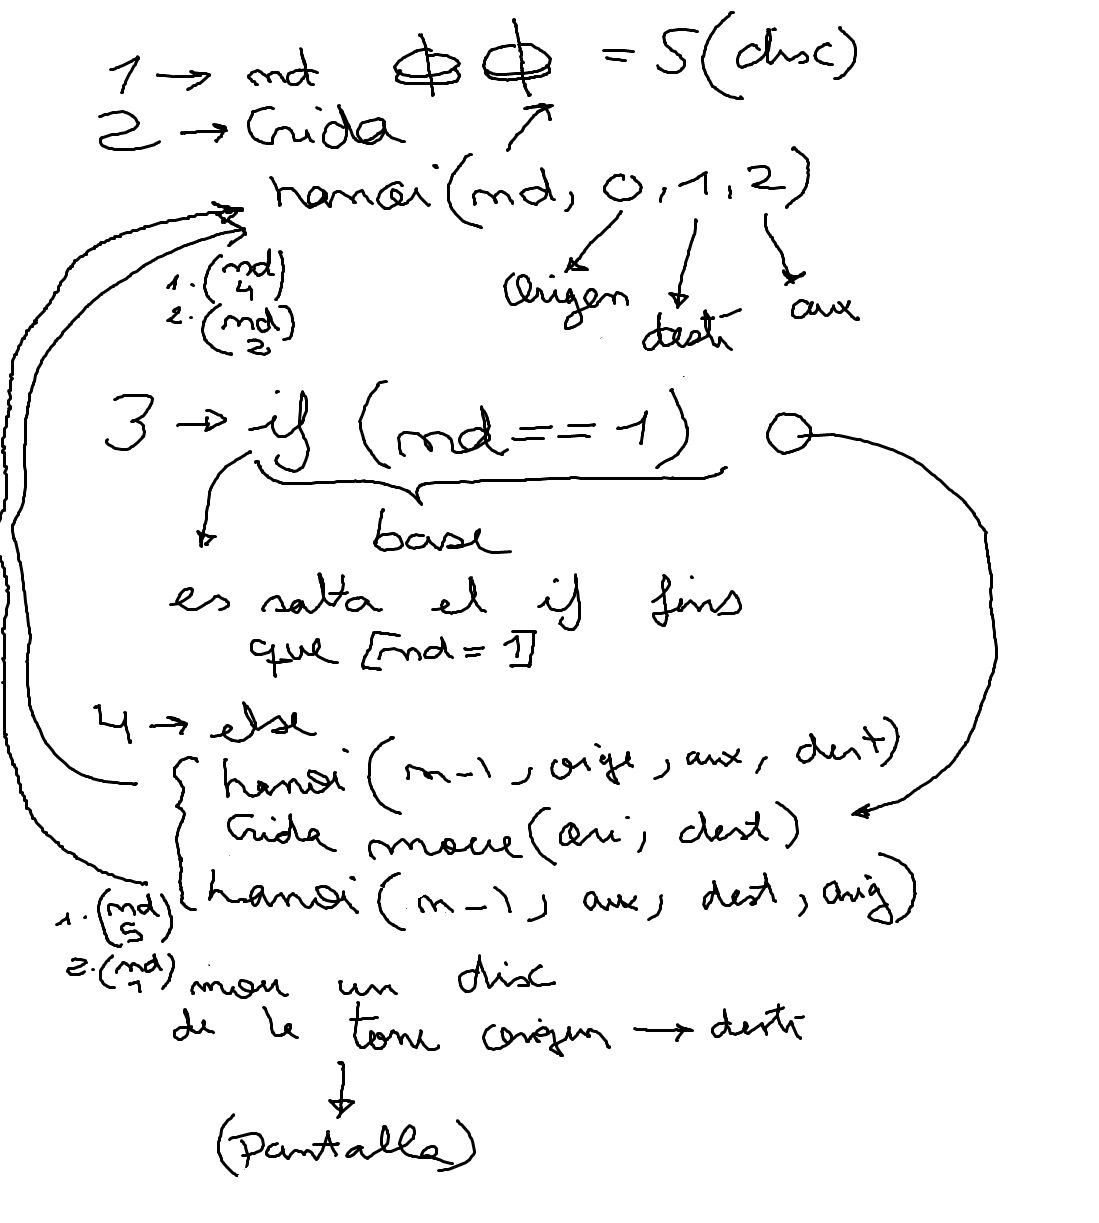 1 → nd = 5 (disc)
2 → Crida
hanoi(nd, 0, 1, 2)
origen destí aux
1. (nd 4)
2. (nd 2)
3 → if (nd == 1)
base
es salta el if fins
que [nd = 1]
4 → else
hanoi (n-1, orige, aux, dest)
Crida moure (ori, dest)
hanoi (n-1, aux, dest, orig)
1. (nd 5)
2. (nd 1)
mou un disc
de la torre origen → destí
(Pantalla)